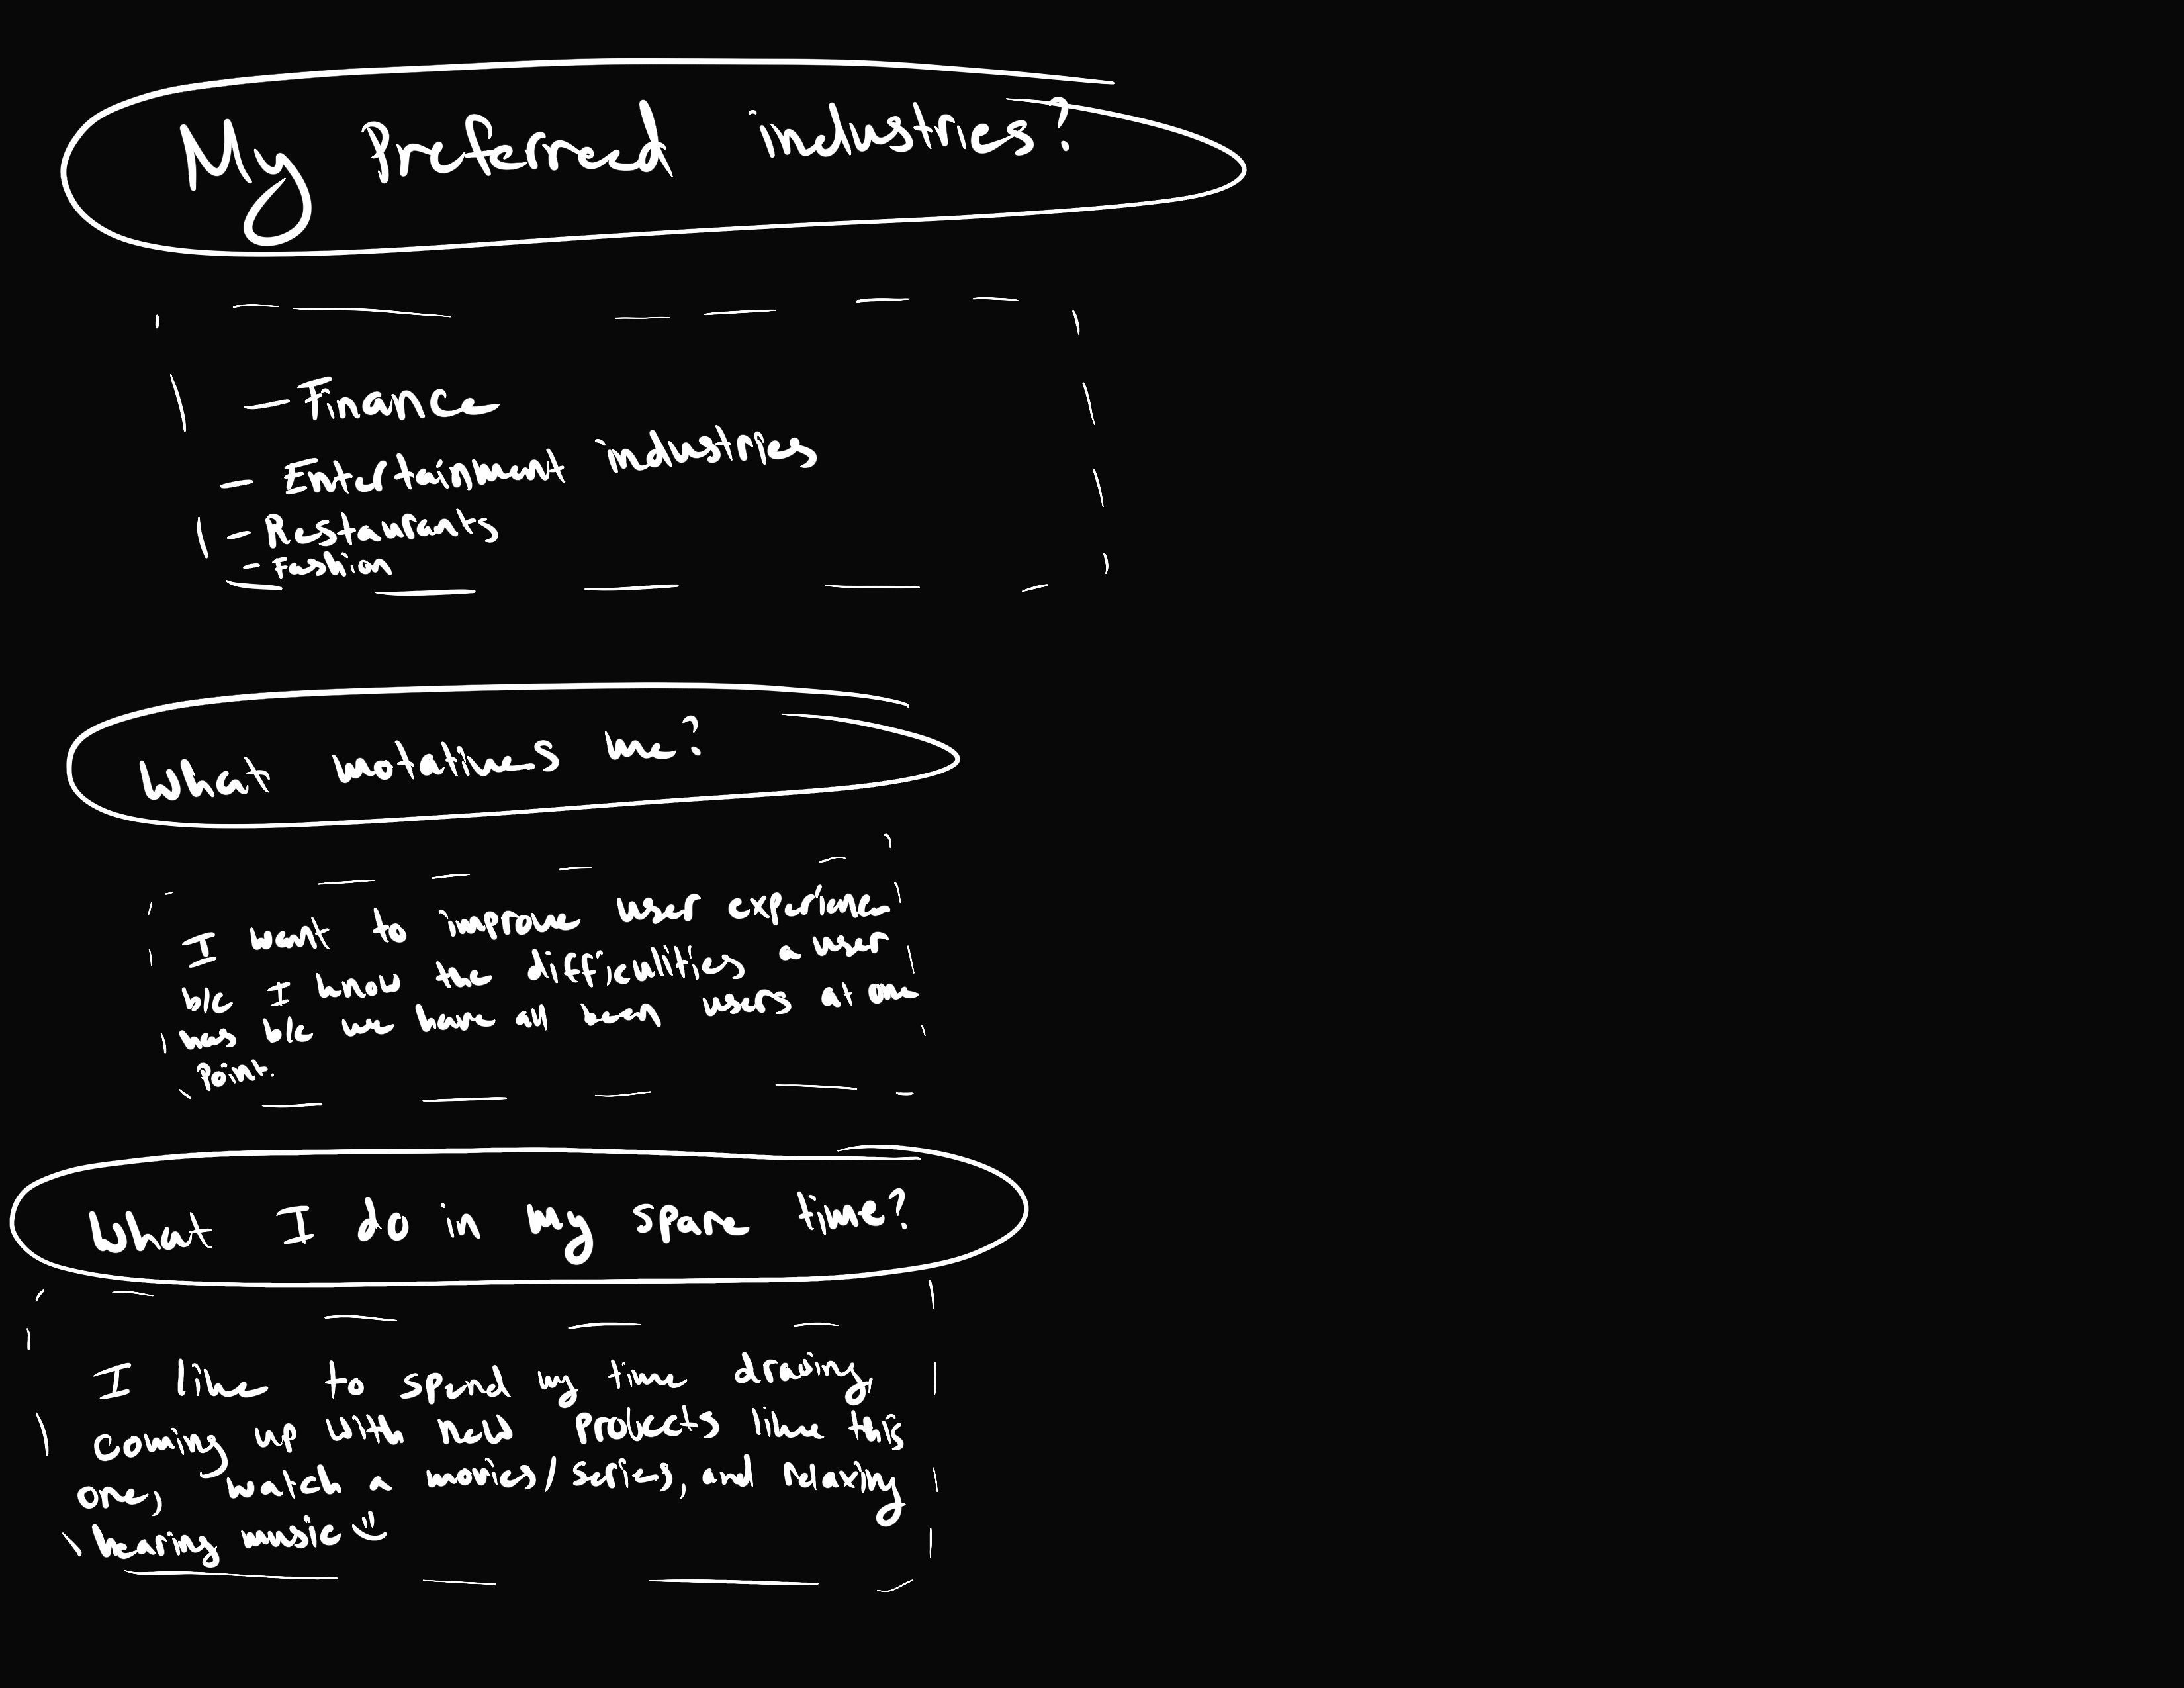 My Preferred industries?
- Finance
- Entertainment industries
- Restaurants
- Fashion
What motatives me?
I want to improve user experience
b/c I know the difficulities a user
has b/c we have all been users at one
point.
What I do in my spare time?
I like to spend my time drawing,
coming up with new projects like this
one, watch a movies/series, and relaxing
hearing music